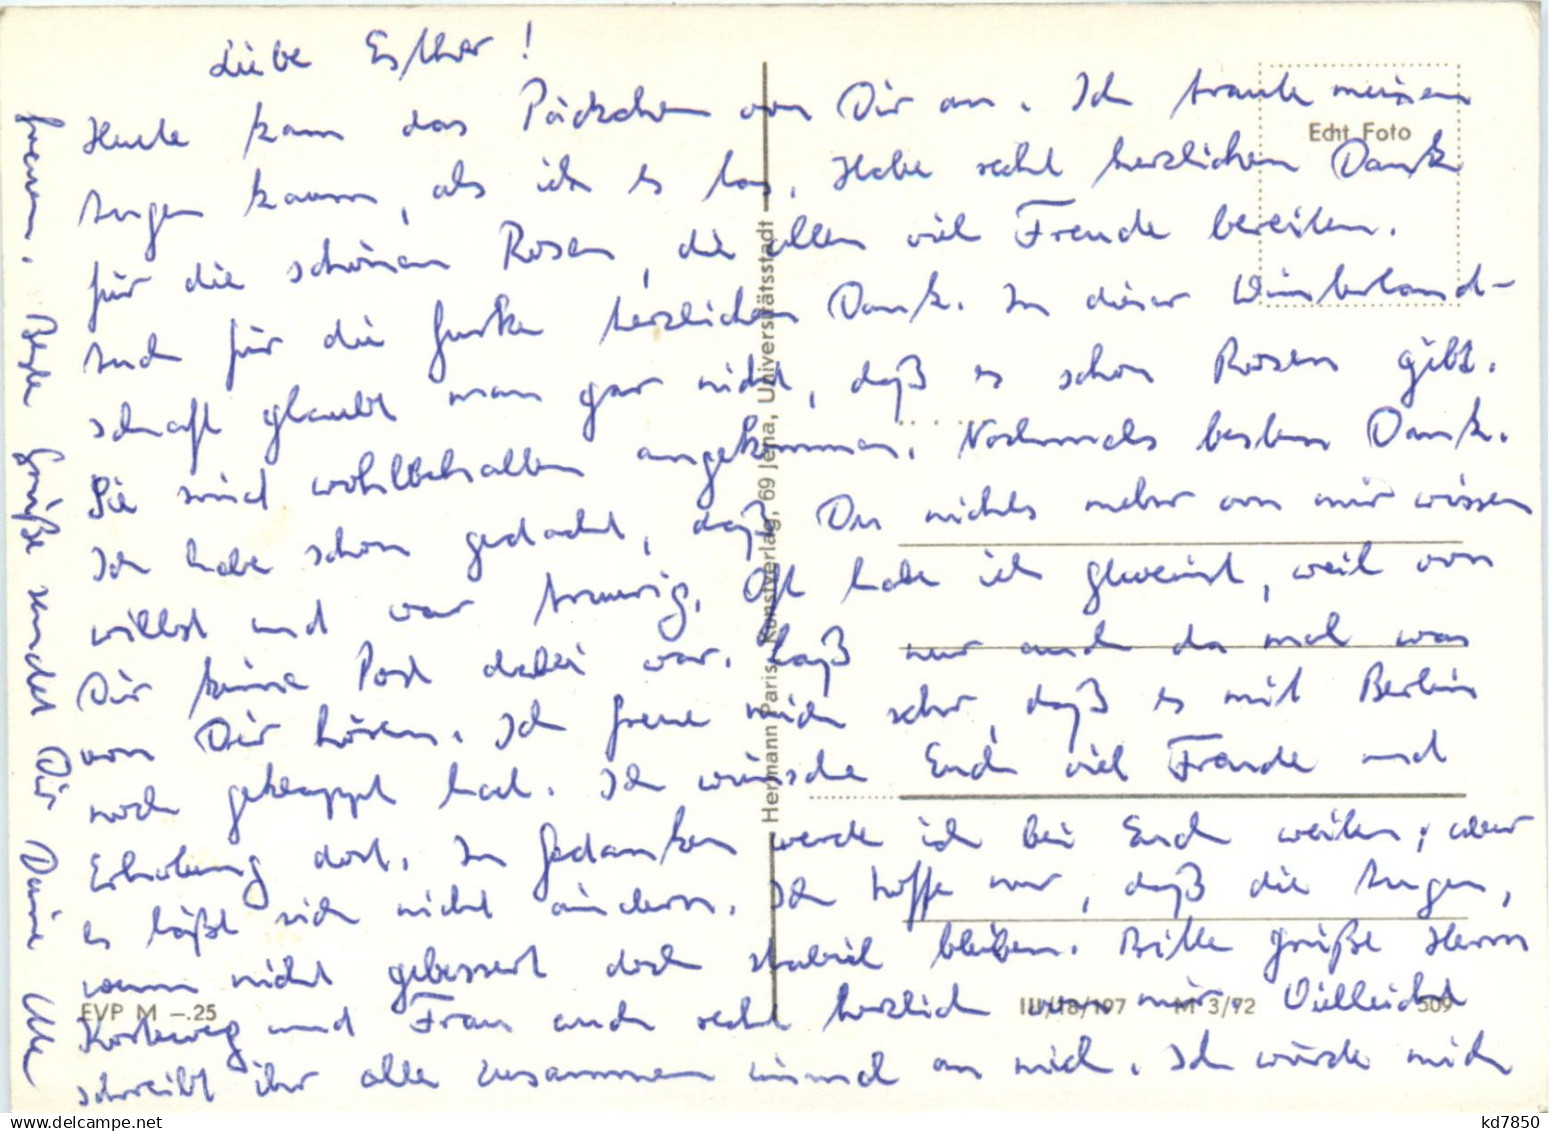 Liebe Esther!
Heute kam das Päckchen von Dir an. Ich traute meinen
Augen kaum, als ich es las. Habe recht herzlichen Dank
für die schönen Rosen, die allen viel Freude bereiten.
Auch für die Gurke herzlichen Dank. In dieser Winterland-
schaft glaubt man gar nicht, daß es schon Rosen gibt.
Sie sind wohlbehalten angekommen. Nochmals besten Dank.
Ich habe schon gedacht, daß Du nichts mehr von mir wissen
willst und war traurig. Oft habe ich geweint, weil von
Dir keine Post dabei war. Laß nur auch da mal was
von Dir hören. Ich freue mich sehr, daß es mit Berlin
noch geklappt hat. Ich wünsche Euch viel Freude und
Erholung dort. In Gedanken werde ich bei Euch weilen; aber
es läßt sich nicht ändern. Ich hoffe nur, daß die Augen,
wenn nicht gebessert doch stabil bleiben. Bitte grüße Herrn
Korteweg und Frau auch recht herzlich von mir. Vielleicht
schreibt ihr alle zusammen einmal an mich. Ich würde mich
freuen. Beste Grüße sendet Dir Deine Ulla
Echt Foto
Hermann Paris, Kunstverlag, 69 Jena, Universitätsstadt
EVP M -.25
III/18/197 M 3/72 509
kd7850